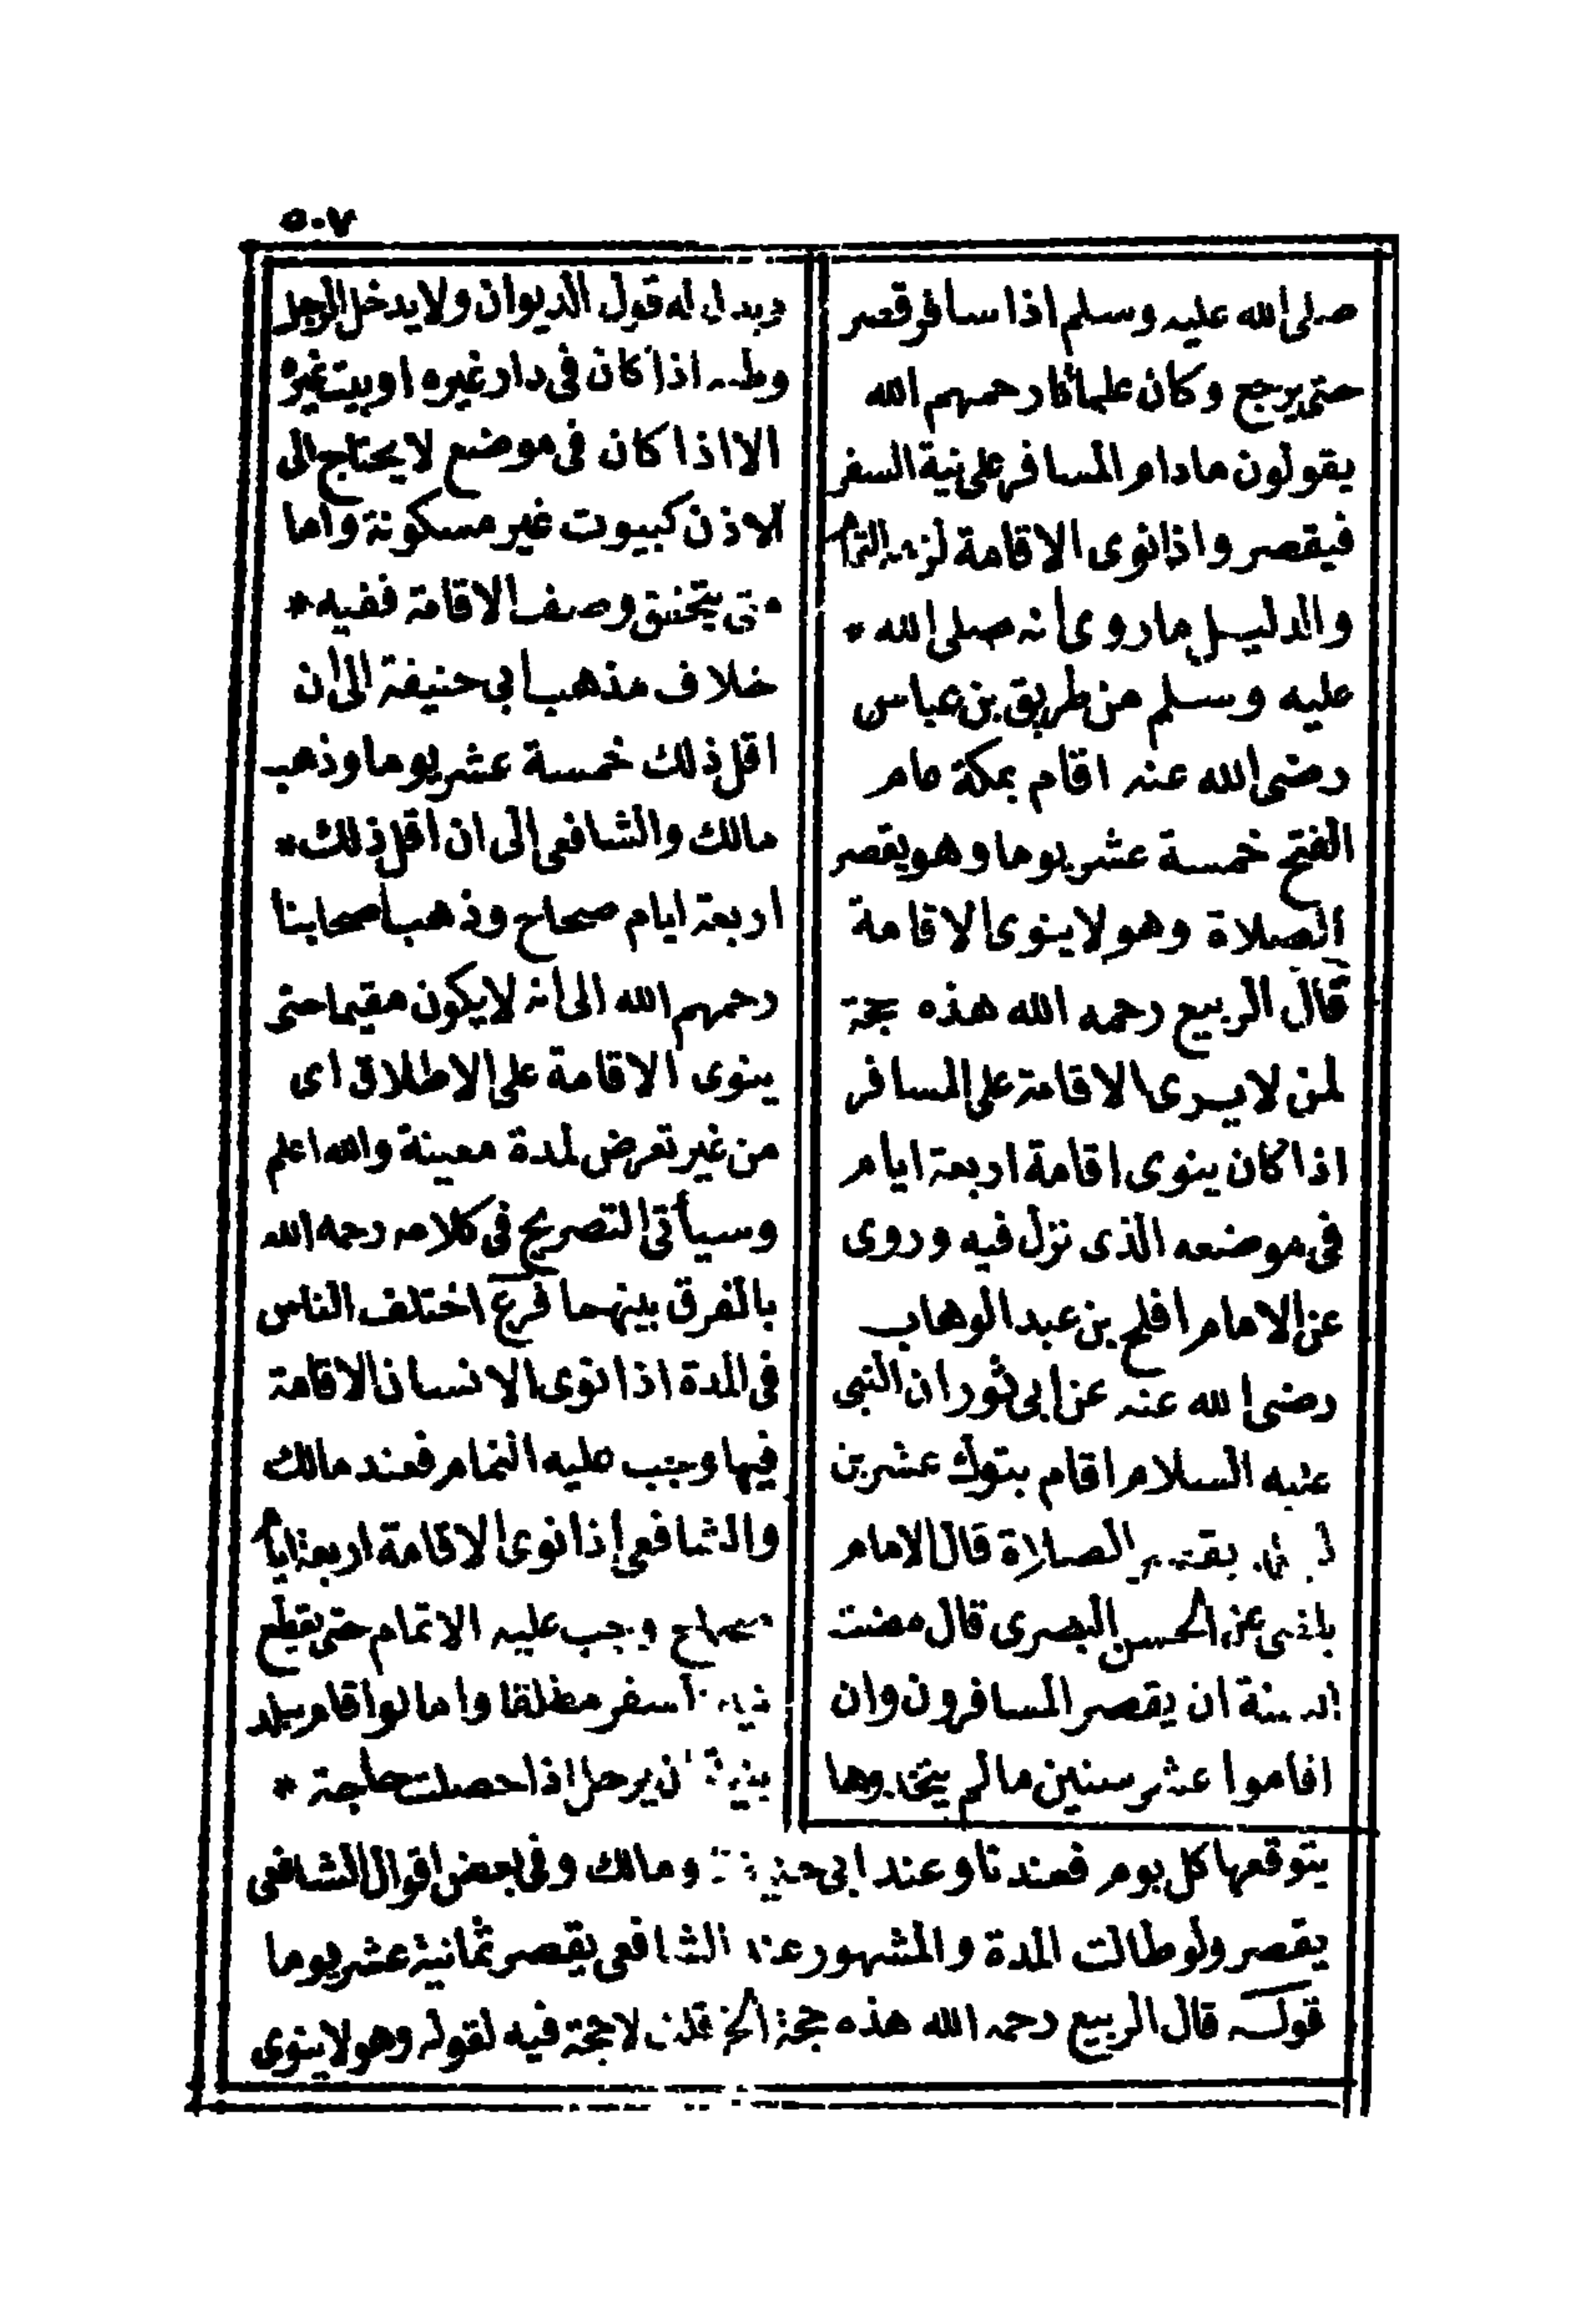 ٥٠٧
صلى الله عليه وسلم اذا سافر قصر
حتى يرجع وكان علمائنا رحمهم الله
يقولون مادام المسافر على نية السفر
فيقصر واذا نوى الاقامة لزمه التمام
والدليل ماروى أنه صلى الله *
عليه وسلم من طريق بن عباس
رضى الله عنه اقام بمكة عام
الفتح خمسة عشر يوما وهو يقصر
الصلاة وهو لا ينوى الاقامة
قال الربيع رحمه الله هذه حجة
لمن لا يرى الاقامة على المسافر
اذا كان ينوى اقامة اربعة ايام
فى موضعه الذى نزل فيه وروى
عن الامام افلح بن عبد الوهاب
رضى الله عنه عن ابى ثور ان النبى
عليه السلام اقام بتوك عشرين
يقصر الصلاة قال الامام
عن الحسن البصرى قال مضت
السنة ان يقصر المسافرون وان
اقاموا عشر سنين مالم يتخذوها
ويدل له قول الديوان ولا يدخل الرجل
وطنه اذا كان فى دار غيره او بيت غيره
الا اذا كان فى موضع لا يحتاج الى
الاذن كبيوت غير مسكونة واما
متى يتحقق وصف الاقامة ففيه *
خلاف مذهب ابى حنيفة الى ان
اقل ذلك خمسة عشر يوما وذهب
مالك والشافعى الى ان أقل ذلك *
اربعة ايام صحاح وذهب اصحابنا
رحمهم الله الى أنه لا يكون مقيما حتى
ينوى الاقامة على الاطلاق اى
من غير تعرض لمدة معينة والله اعلم
وسيأتى التصريح فى كلامه رحمه الله
بالفرق بينهما فرع اختلف الناس
فى المدة اذا نوى الانسان الاقامة
فيها وجب عليه التمام فعند مالك
والشافعى إذا نوى الاقامة اربعة ايام
صحاح وجب عليه الاتمام حتى يقطع
نية السفر مطلقا واما لو اقام ببلد
بنية ان يرحل اذا حصلت حاجة *
يتوقعها كل يوم فعندنا وعند ابى حنيفة ومالك وفى بعض اقوال الشافعى
يقصر ولو طالت المدة والمشهور عند الشافعى يقصر ثمانية عشر يوما
قوله قال الربيع رحمه الله هذه حجة الخ قلت لا حجة فيه لقوله وهو لا ينوى